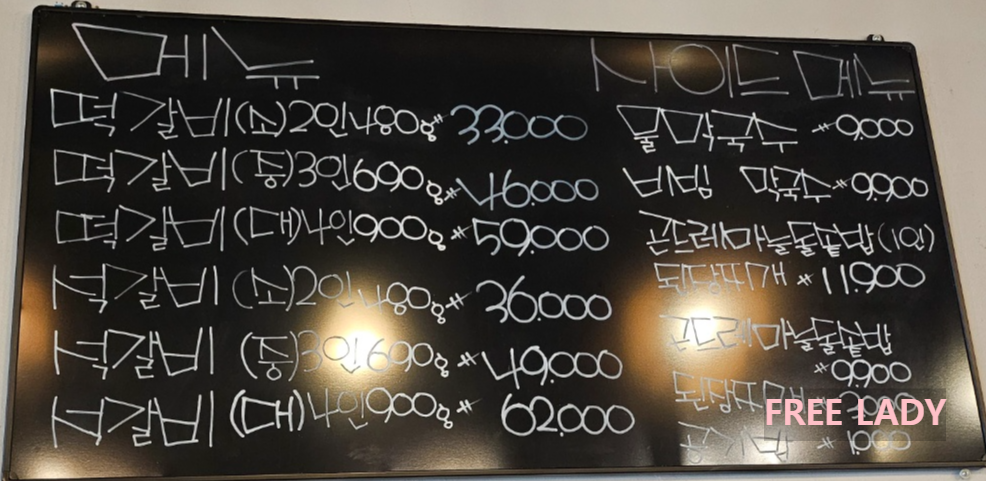 메뉴
떡갈비(소)2인480g#33.000
떡갈비(중)3인690g#46.000
떡갈비(대)4인900g#59.000
석갈비(소)2인480g#36.000
석갈비(중)3인690g#49.000
석갈비(대)4인900g#62.000
사이드 메뉴
물막국수 #9.000
비빔 막국수#9.900
곤드레마늘돌솥밥(1인)
된장찌개 #11.900
곤드레마늘돌솥밥
#9.900
된장찌개
공기밥 #1.000
FREE LADY